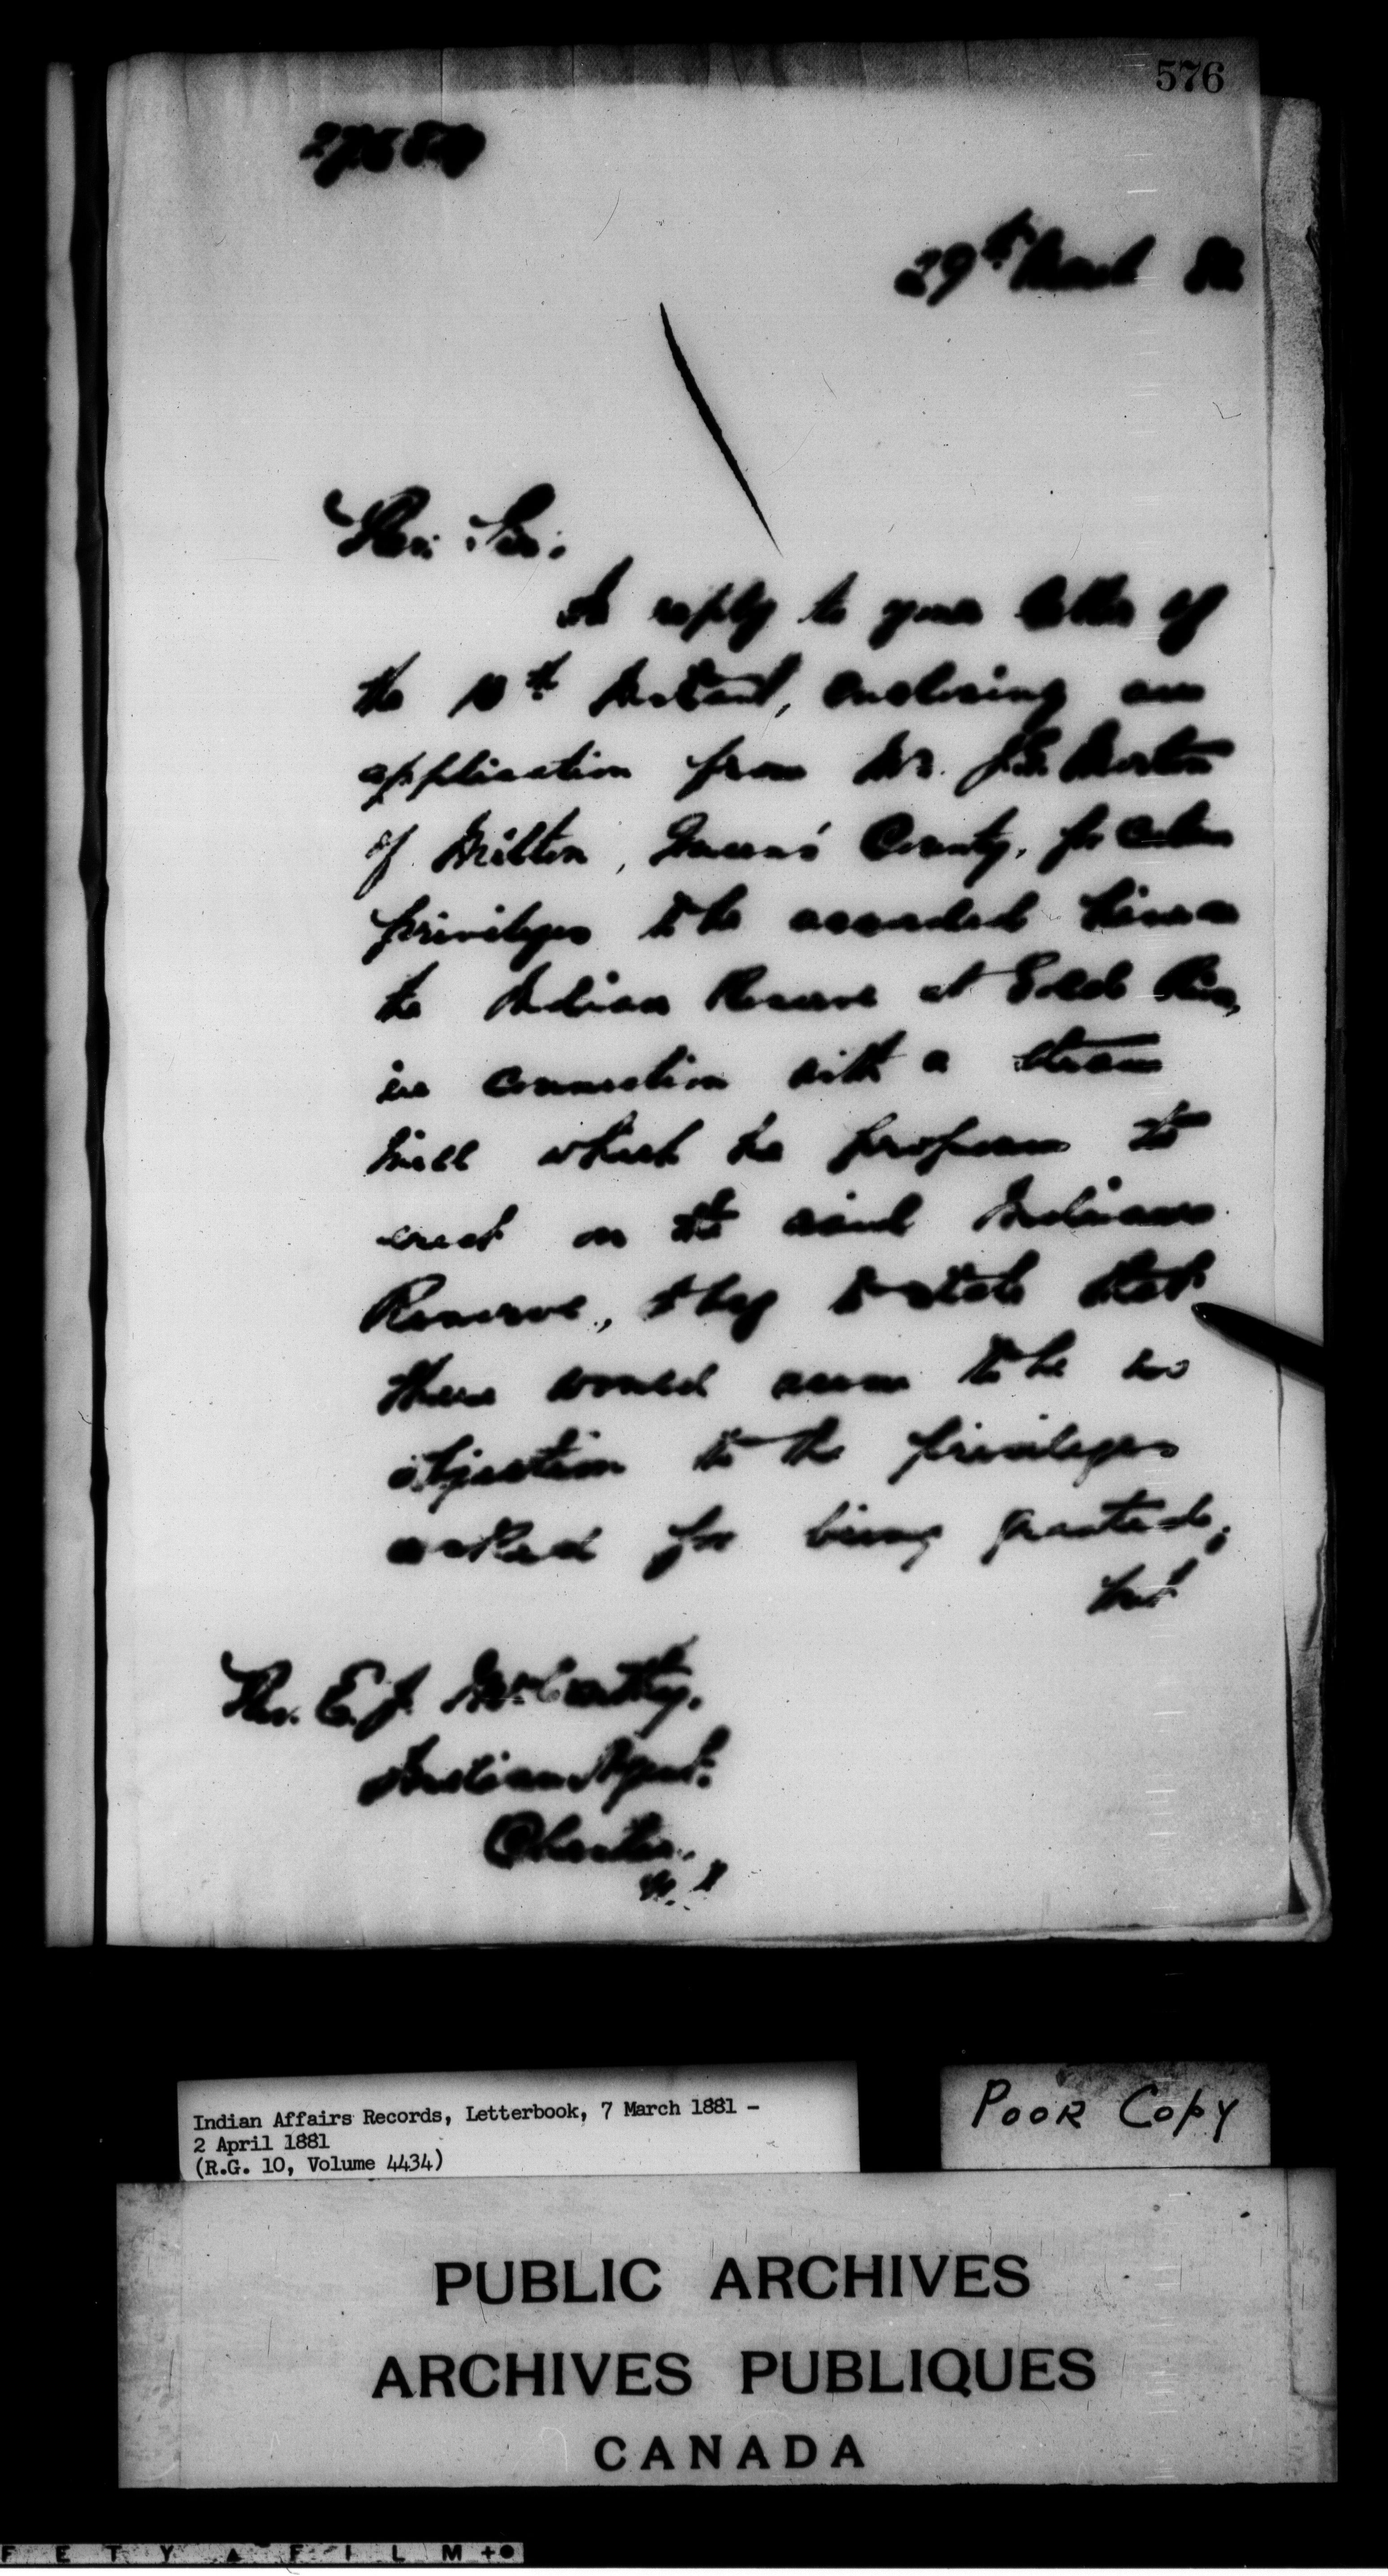 576
29th March 81
Rev. Sir:
In reply to your letter of
the 10th Instant, enclosing an
application from Mr. Morton
of Milton, Queens' County, for certain
privileges to be accorded him on
the Indian Reserve at Gold River,
in connection with a steam
Mill which he proposes to
erect on the said Indian
Reserve, I beg to state that
there would seem to be no
objection to the privileges
asked for being granted;
but
Rev. E. J. McCarthy,
Indian Agent.
Chester.
N. S.
Indian Affairs Records, Letterbook, 7 March 1881 –
2 April 1881
(R.G. 10, Volume 4434)
POOR COPY
PUBLIC ARCHIVES
ARCHIVES PUBLIQUES
CANADA
F E T Y ▲ F I L M +●